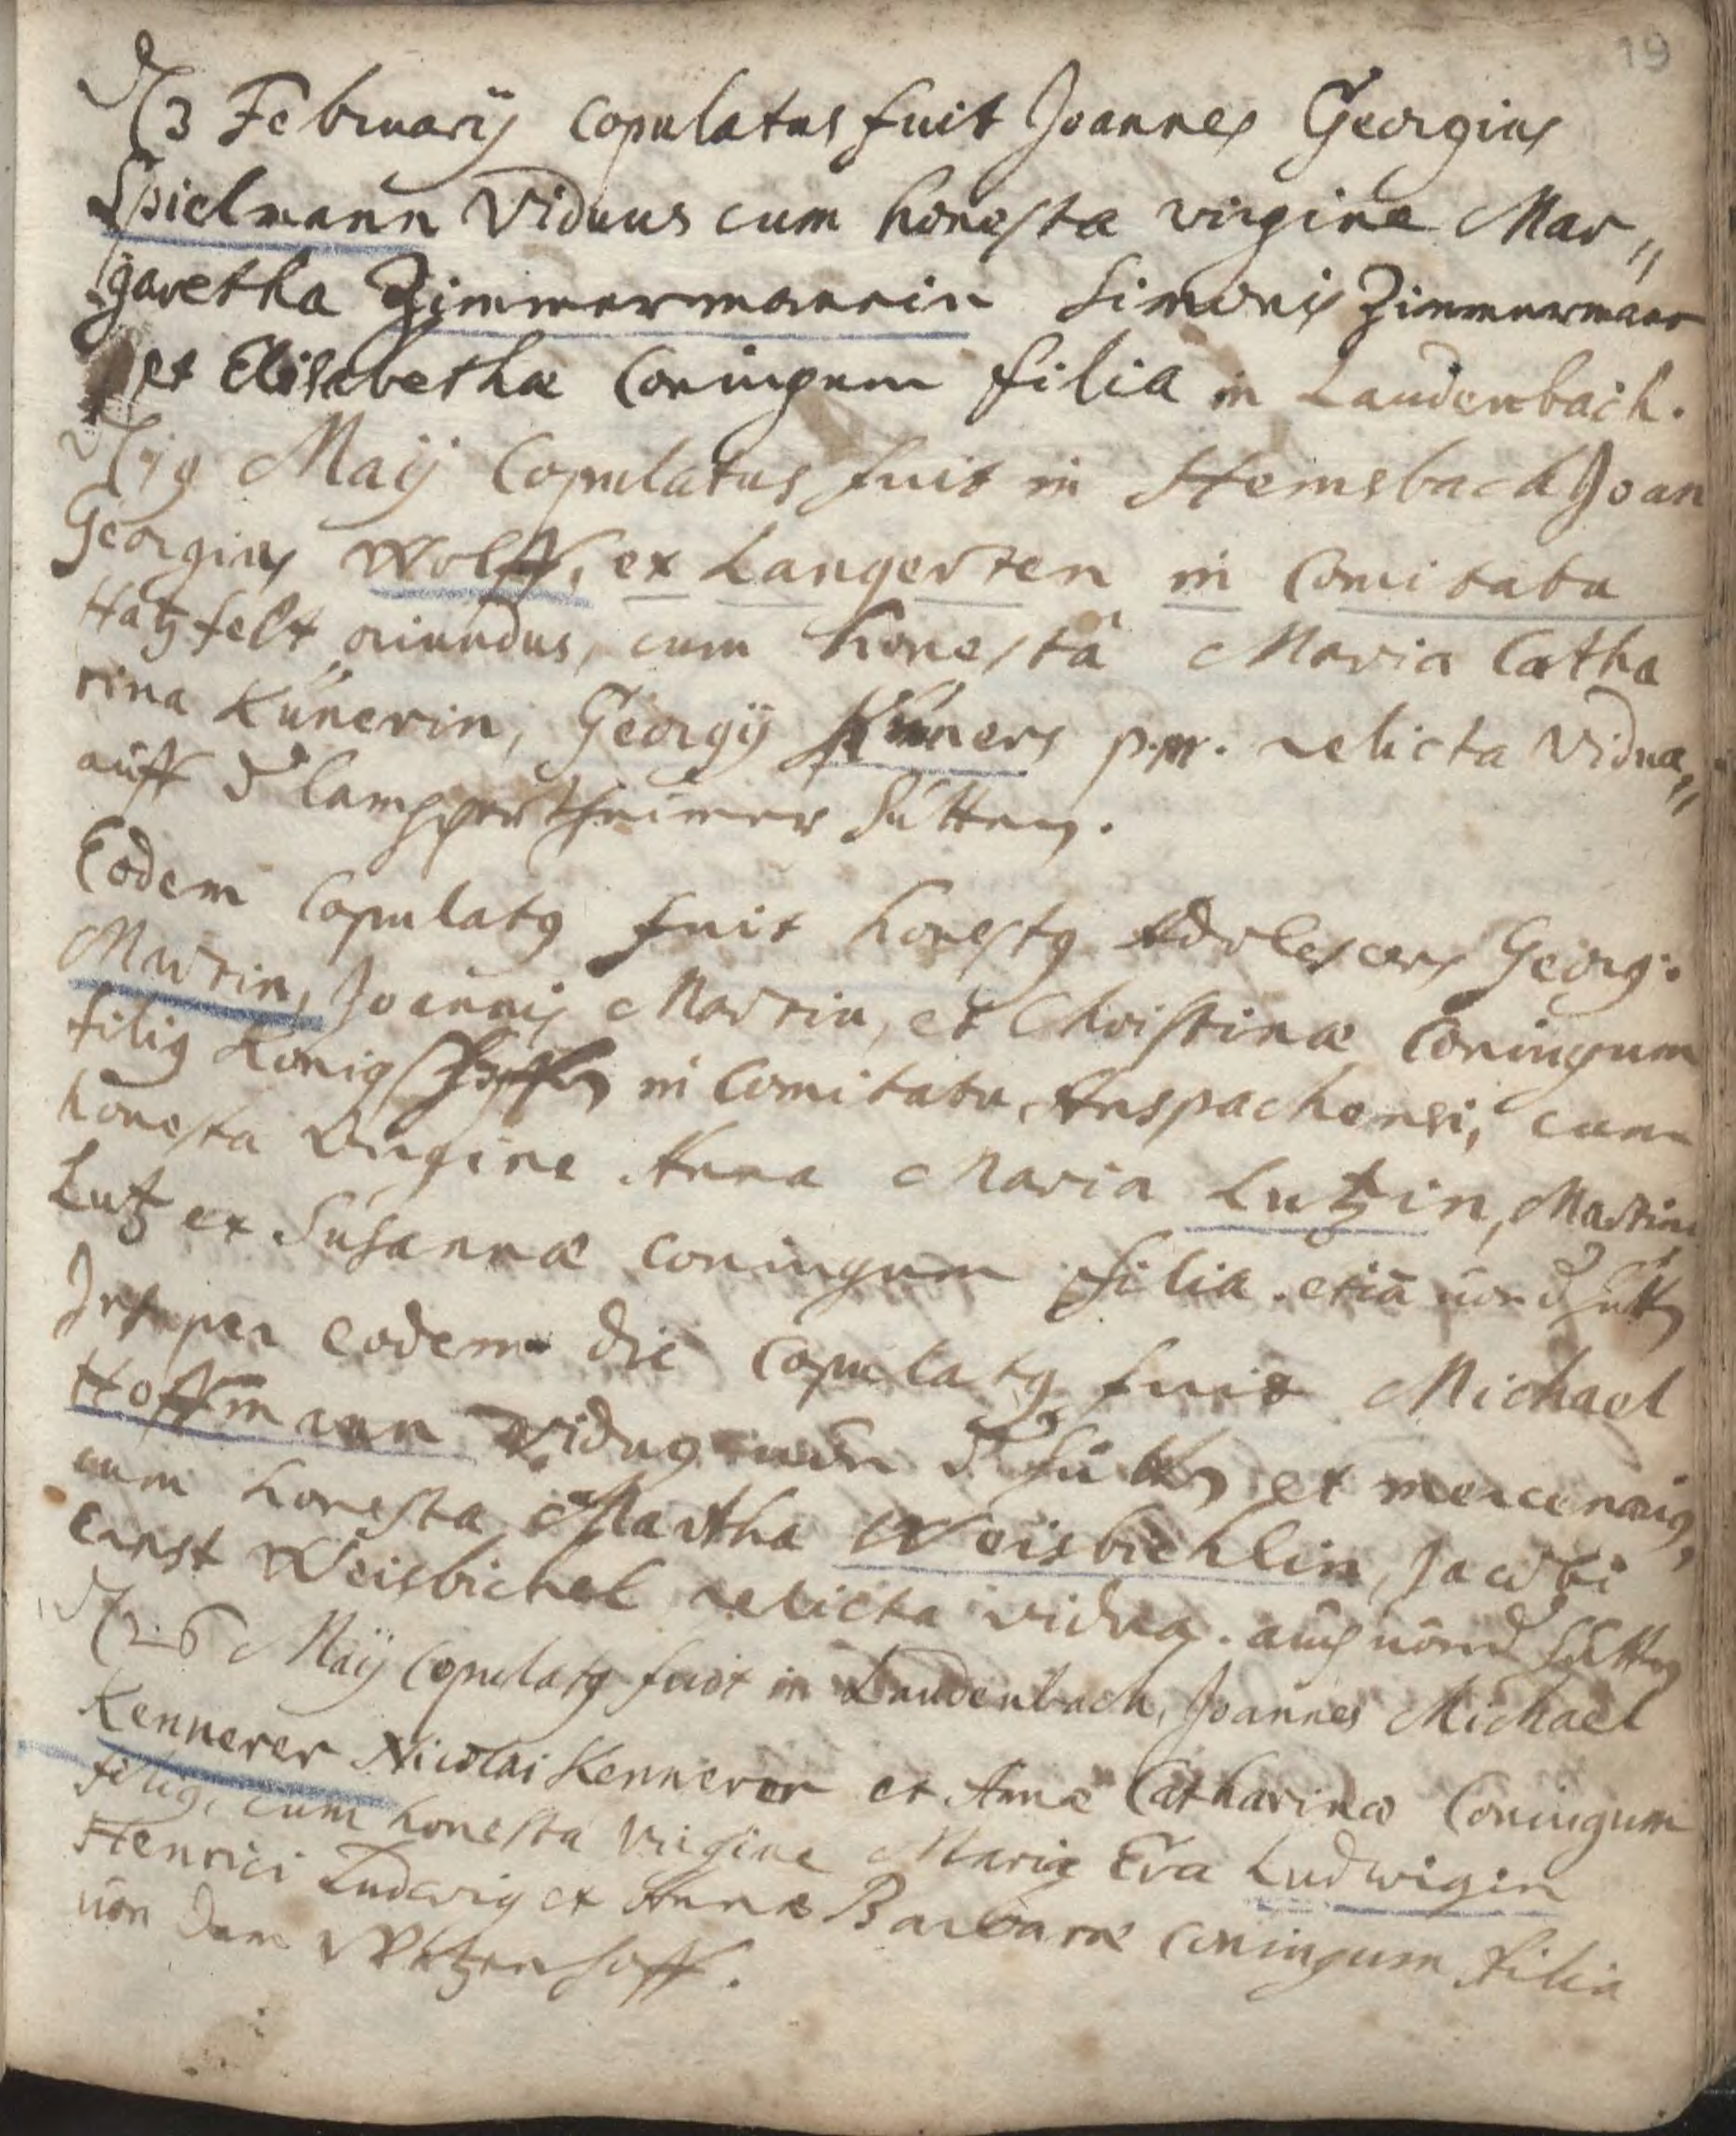 19
d 3 Februarÿ copulatus fuit Joannes Georgius
Spielmann Viduus cum honesta virgine Mar„
garetha Zimmermannin Simonis Zimmermann
et Elisabethæ Coniugum filia in Laudenbach.
d 19 Maÿ Copulatus fuit in Hemsbach Joan
Georgius Wolff, ex Langersten in Comitatu
Hatzfelt oriundus, cum honestâ Maria Catha
rina Künerin, Georgÿ Küners p.m. relicta Vidua„
auff d lampertheimer hütten.
Eodem Copulatg fuit honestg Adolescens Georg:
Martin, Joannis Martin, et Christinæ Coniugum
filig König in Comitatu Anspachensi, cum
honesta Virgine Anna Maria Lutzin, Martini
Lutz et Susannæ coniugum filia. etiã von d hütt
Insuper eodem die Copulatg fuit Michael
Hoffmann Vidug von d hütten et mercenarig,
cum honesta Martha Weisbichlin, Jacobi
Ernst Weisbichel relicta vidua. auch von d hütten
d 26 Maÿ Copulatg fuit in Laudenbach, Joannes Michael
Kennerer Nicolai Kennerer et Annæ Catharinæ Coniugum
filig, cum honesta Virgine Maria Eva Ludwigin
Henrici Ludwig et Annæ Barbaræ coniugum filia
von dem hoff.